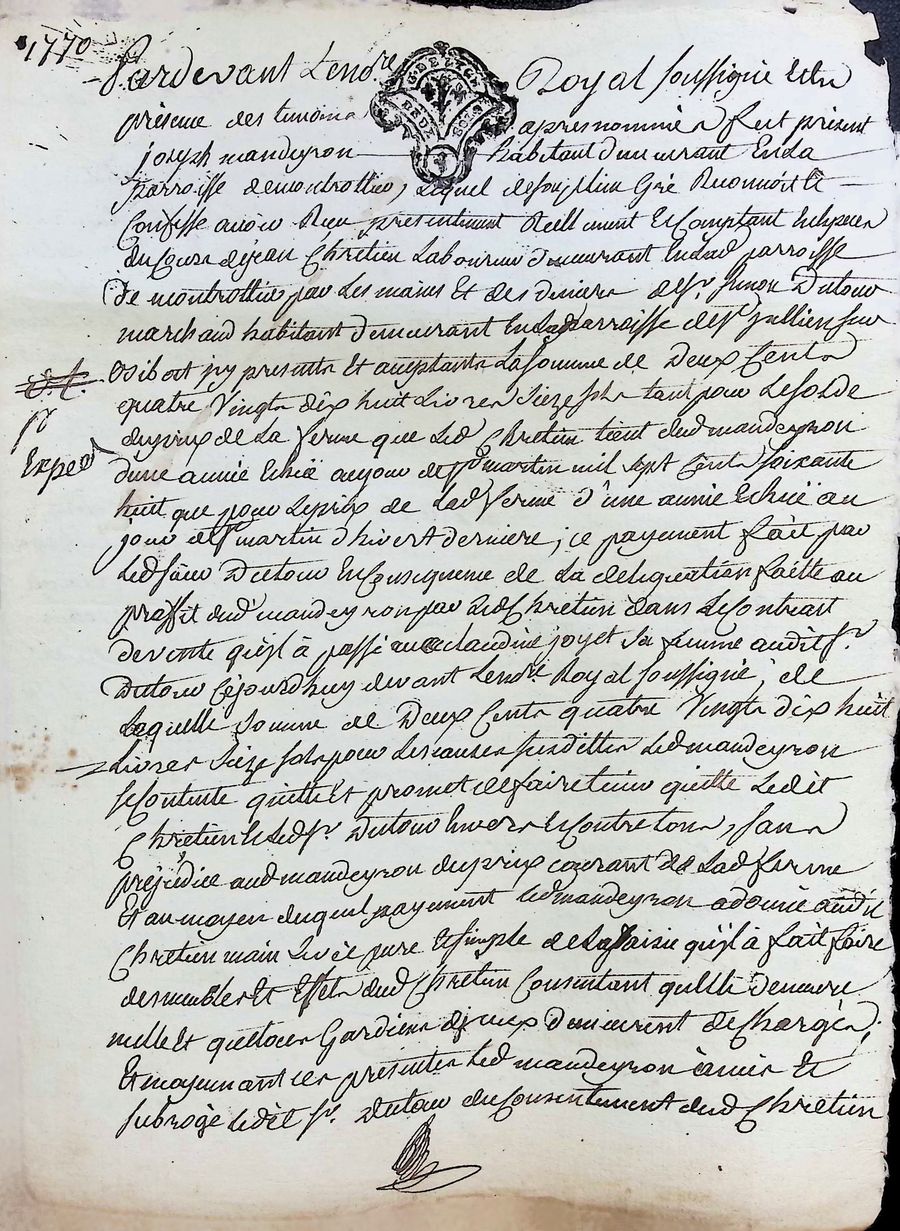 1770
Pardevant Lenore Royal soussigné Et En
G. DE LYON
DEUX SOLS
présence des temoins apres nommés fut présent
joseph mandeyron habitant demeurant En La
parroisse demontrottier, Lequel desonplein Gré Reconnoit Et
Confesse avoir Reçu presentement Reellement Et Comptant En Especes
du Cours dejean Chretien Laboureur demeurant En Lad parroisse
de montrottier par Les mains Et des deniers de Sr. Simon Dutour
marchand habitant demeurant En La parroisse de St jullien sur
Bibost icy present Et acceptant La Somme de Deux Cents
quatre Vingts dix huit Livres Seize sols tant pour Lesolde
duprix de La ferme que Led Chretien tient dud mandeyron
pr
Exped
d'une année Echüe aujour de St martin mil sept Cents soixante
huit que pour Leprix de Lad ferme d'une année Echüe au
jour de St martin d'hivert derniere; ce payement fait par
Led Sieur Dutour En Consequence de La delegation faitte au
proffit dud mandeyron par Led Chretien dans Le Contract
devente qu'il à passé avec claudine joyet Sa femme audit Sr.
Dutour Cejourdhuy devant Lenore Royal soussigné, de
Laquelle Somme de Deux Cents quatre Vingts dix huit
Livres Seize sols pour Les causes susdittes Led mandeyron
se Contente quitte Et promet defaire tenir quitte Ledit
Chretien Et Led Sr. Dutour Envers Et Contre tous, sans
préjudice aud mandeyron duprix courant de Lad ferme
Et au moyen duquel payement Led mandeyron a donné aud
Chretien main Levée pure Et simple de La saisie qu'il à fait faire
des meubles Et Effets dud Chretien Consentant qu'elle demeure
nulle Et que Les Gardiens d'jceux demeurent dechargés;
Et moyennant ces presentes Led mandeyron à mis Et
subrogé Ledit Sr. Dutour du Consentement dud Chretien